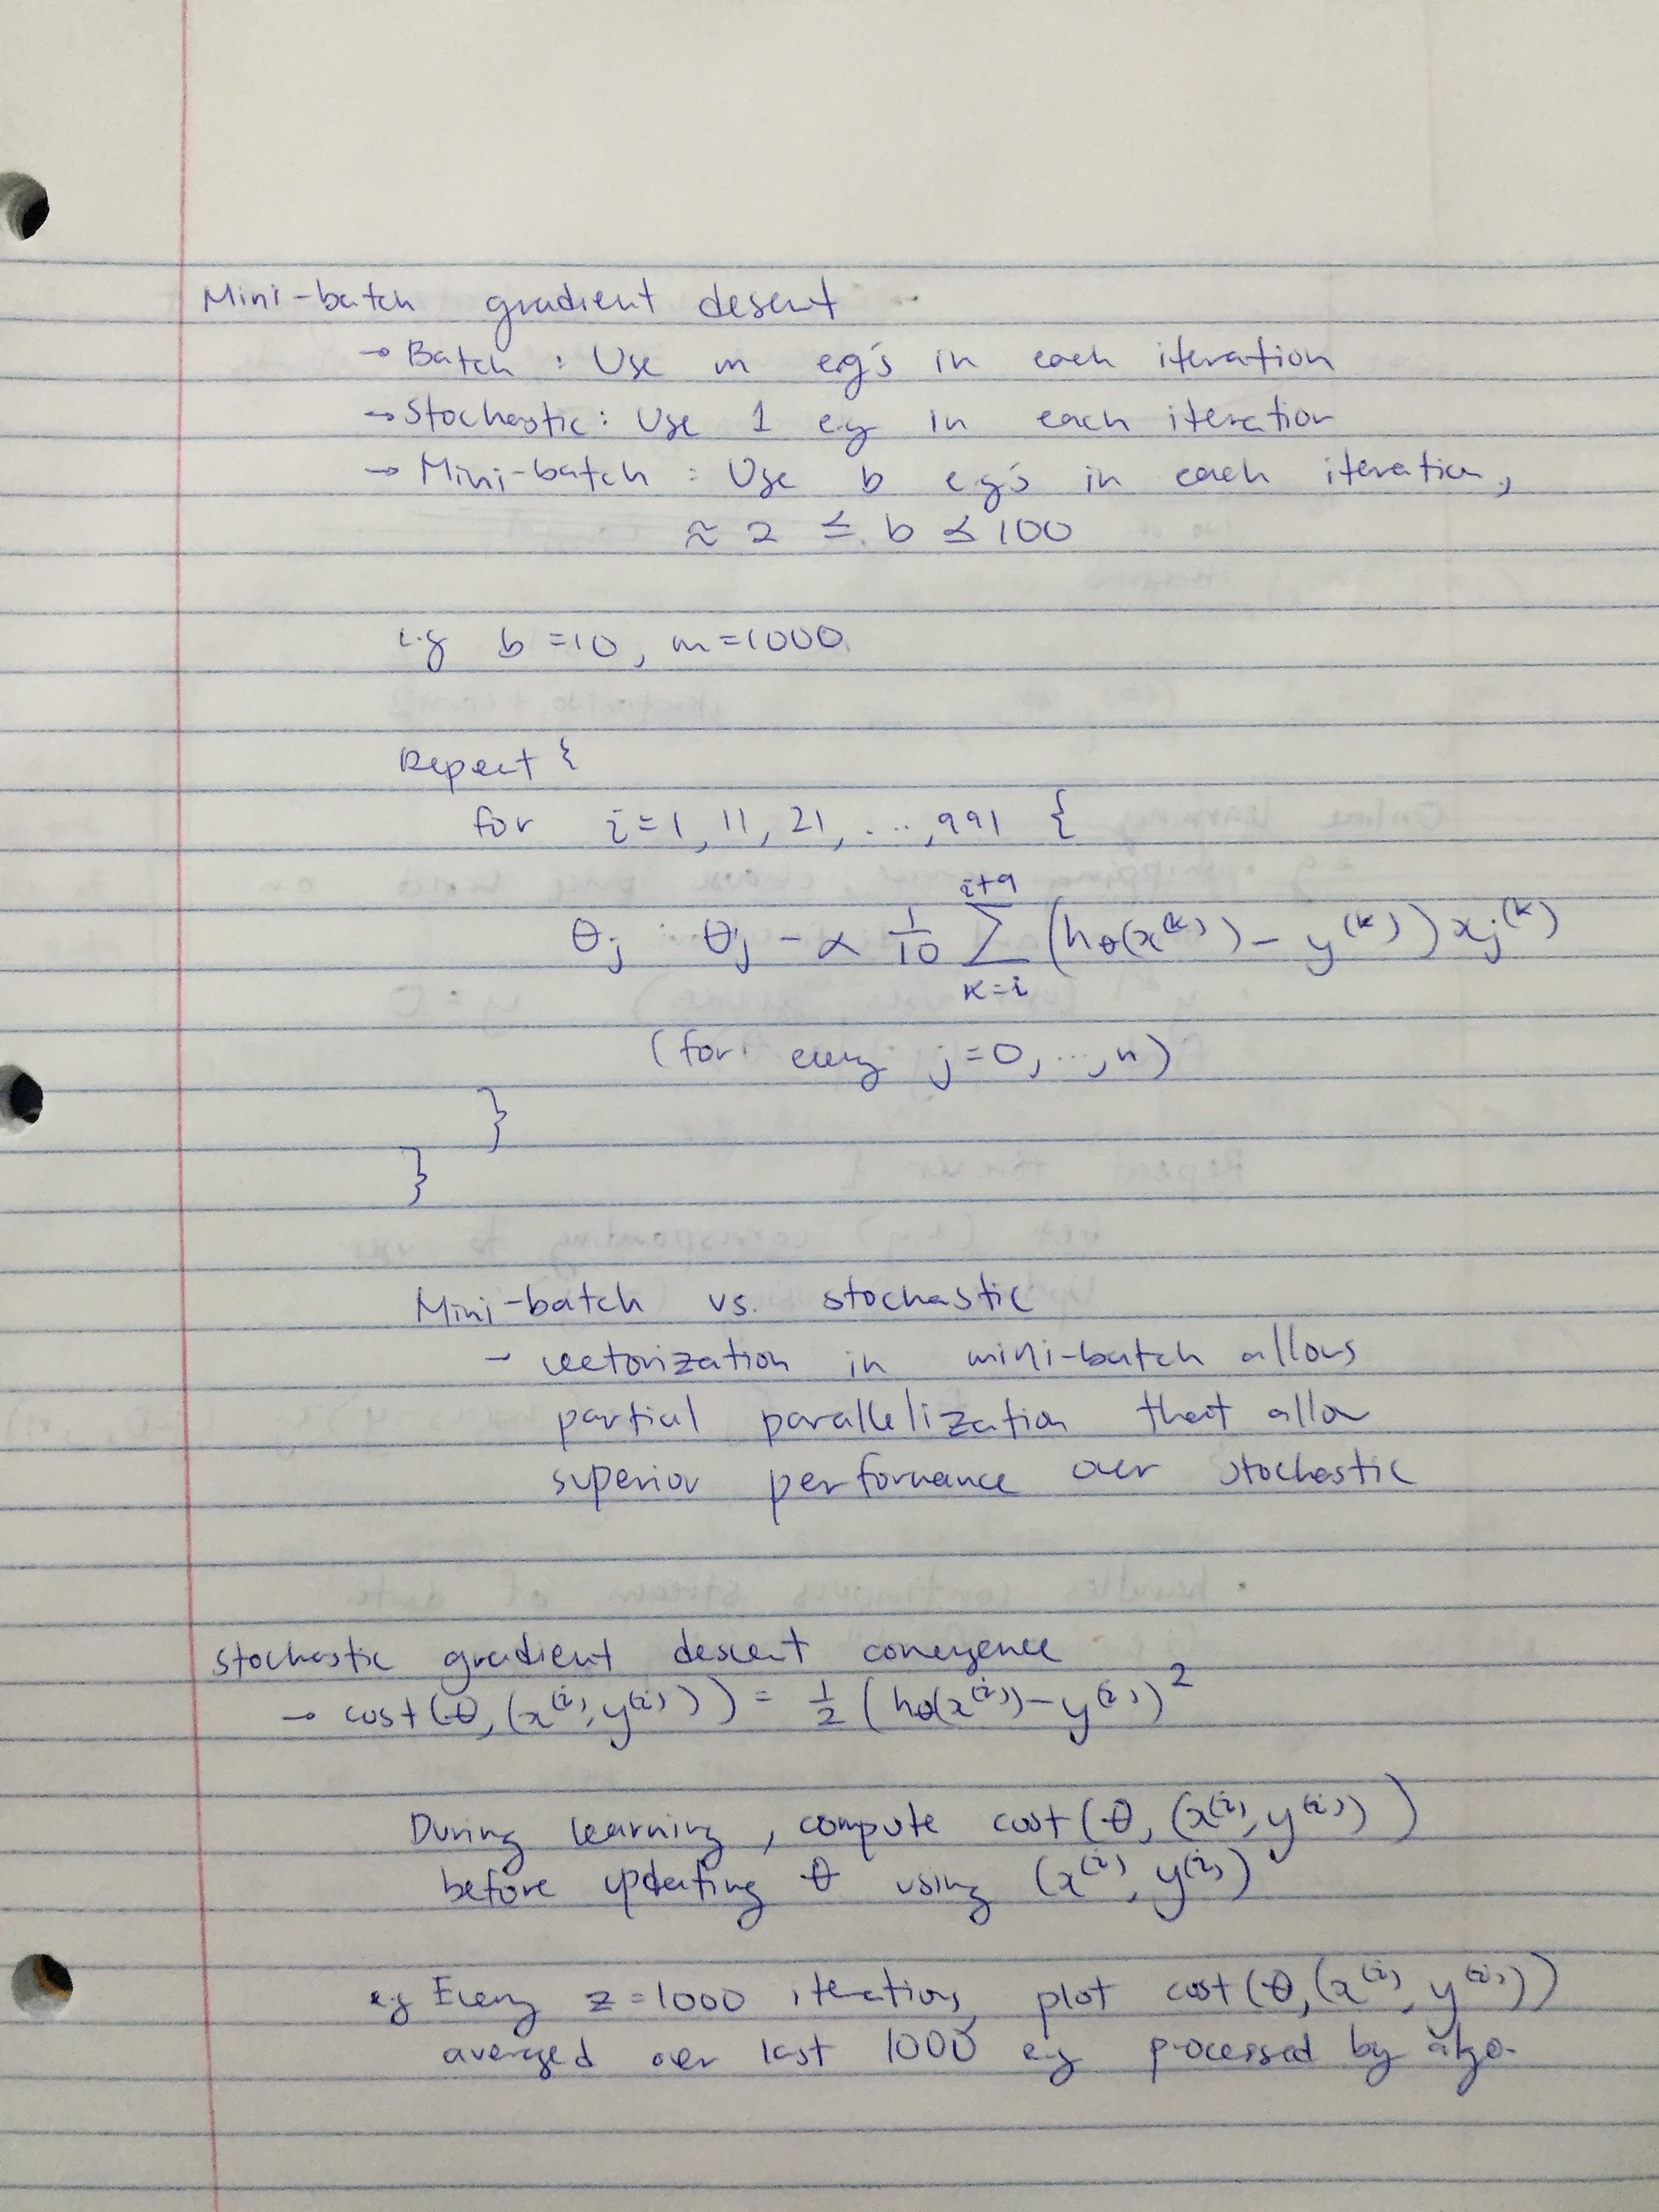 Mini-batch gradient desent
→ Batch : Use m eg's in each iteration
→ Stochastic : Use 1 eg in each iteration
→ Mini-batch : Use b eg's in each iteration,
≈ 2 ≤ b ≤ 100
e.g b = 10, m = 1000
Repeat {
for i = 1, 11, 21, ..., 991 {
θj : θj - α 1/10 Σ_{k=i}^{i+9} (hθ(x^(k)) - y^(k)) xj^(k)
(for every j = 0, ..., n)
}
}
Mini-batch vs. stochastic
- vectorization in mini-batch allows
partial parallelization that allow
superior performance over stochastic
Stochastic gradient descent convergence
→ cost(θ, (x^(i), y^(i))) = 1/2 (hθ(x^(i)) - y^(i))^2
During learning, compute cost(θ, (x^(i), y^(i)))
before updating θ using (x^(i), y^(i))
e.g Every z = 1000 iterations, plot cost(θ, (x^(i), y^(i)))
averaged over last 1000 e.g processed by algo.